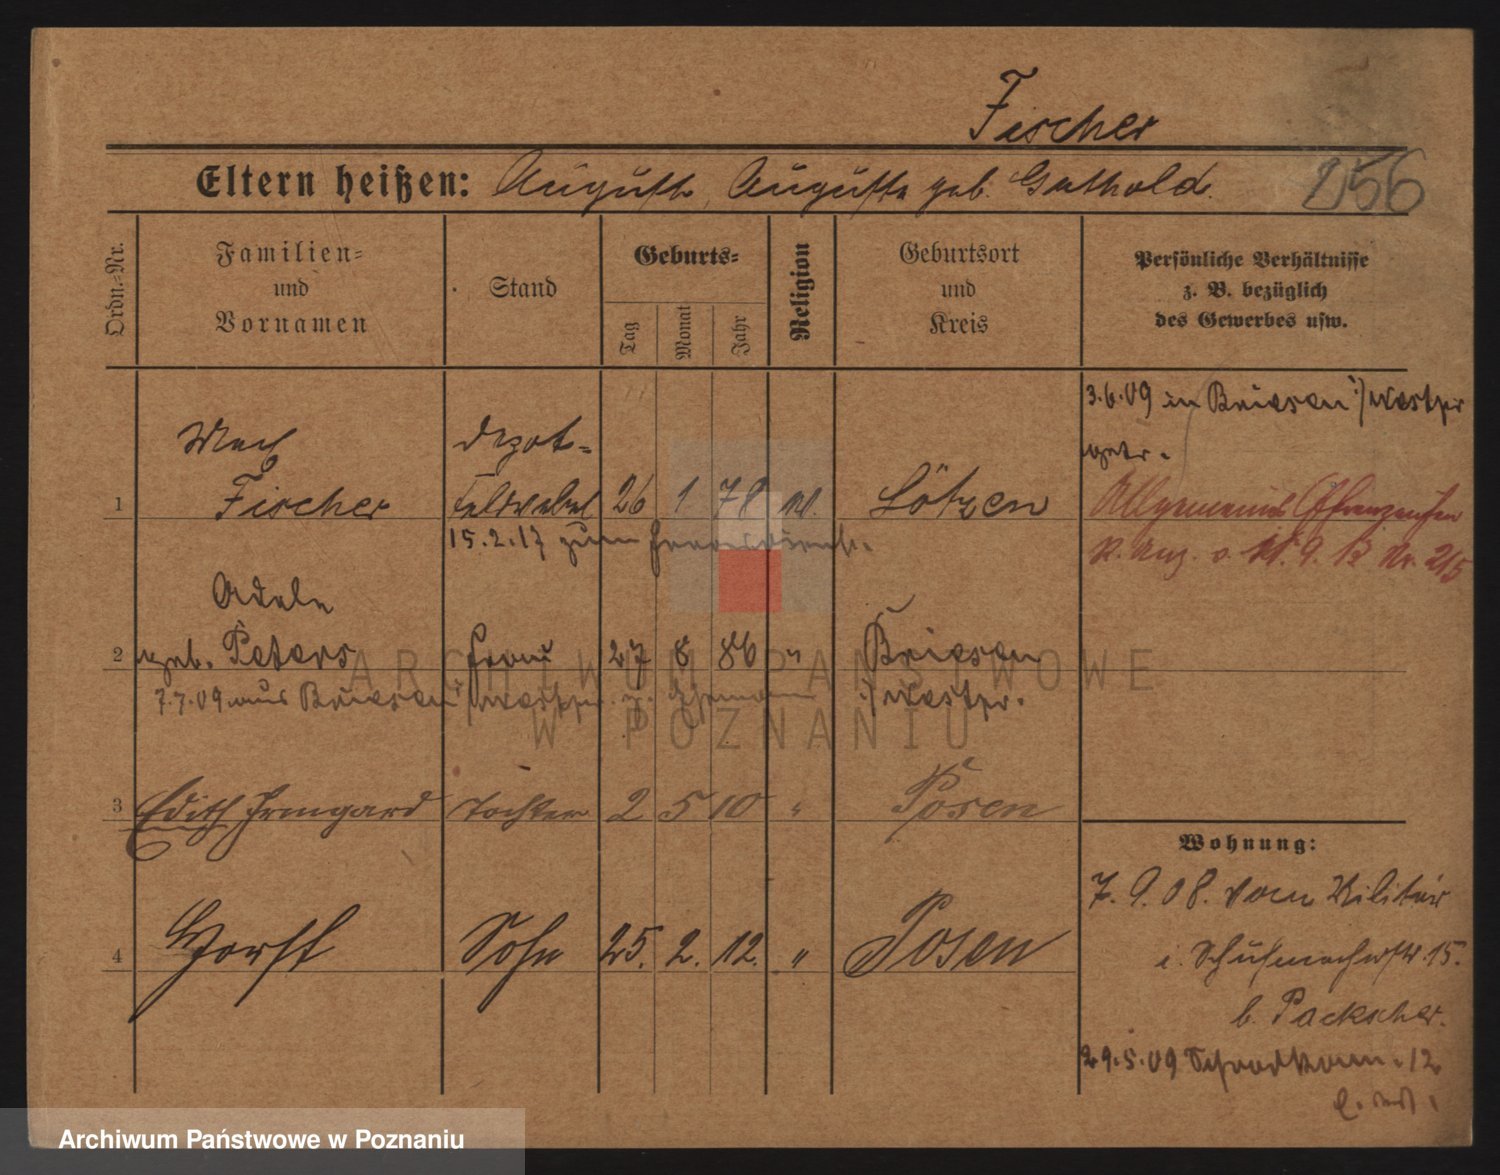 Fischer
Eltern heißen: August, Auguste geb. Guthold.
256
Ordn.-Nr.
Familien-
und
Vornamen
Stand
Geburts-
Tag
Monat
Jahr
Religion
Geburtsort
und
Kreis
Persönliche Verhältnisse
z. B. bezüglich
des Gewerbes usw.
3.6.09 in Briesen i/Westpr
getr.
Max
Depot-
1 Fischer Feldwebel 26 1 78 Lötzen
15.2.17 zum
Nr. 215
Adele
2 geb. Peters Frau 27 8 86 " Briesen
7.7.09 aus Briesen i/Westpr. z. Ehemann
i/Westpr.
3 Edith Irmgard Tochter 2 5 10 " Posen
4 Horst Sohn 25. 2. 12. " Posen
Wohnung:
7.9.08. vom Militär
i. Schuhmacherstr. 15.
b. Packscher.
29.5.09 12
ARCHIWUM PAŃSTWOWE
W POZNANIU
Archiwum Państwowe w Poznaniu